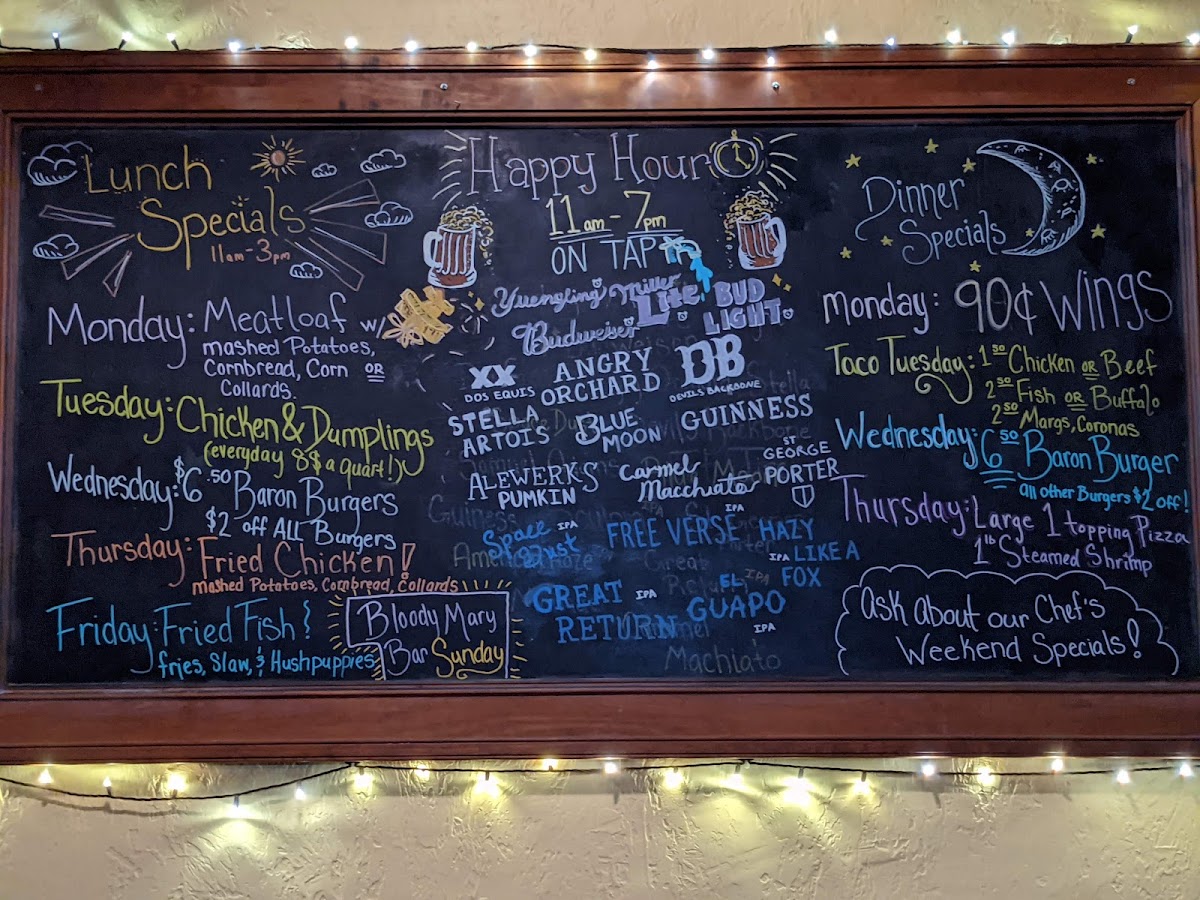 Lunch
Specials
11am-3pm
Monday: Meatloaf w/
mashed Potatoes,
Cornbread, Corn OR
Collards.
Tuesday: Chicken & Dumplings
(everyday 8$ a quart!)
Wednesday: $6.50 Baron Burgers
$2 off ALL Burgers
Thursday: Fried Chicken!
mashed Potatoes, Cornbread, Collards
Friday: Fried Fish &
fries, Slaw, & Hushpuppies
Bloody Mary
Bar Sunday
Happy Hour
11am-7pm
ON TAP
Yuengling Miller Lite BUD LIGHT
Budweiser
XX DOS EQUIS
ANGRY ORCHARD
DB DEVILS BACKBONE
STELLA ARTOIS
BLUE MOON
GUINNESS
ALEWERKS PUMKIN
Carmel Macchiato
ST GEORGE PORTER
Space Dust IPA
FREE VERSE IPA
HAZY LIKE A FOX IPA
GREAT RETURN IPA
EL GUAPO IPA
Machiato
Dinner
Specials
Monday: 90¢ Wings
Taco Tuesday: 1.50 Chicken OR Beef
2.50 Fish OR Buffalo
2.50 Margs, Coronas
Wednesday: 6.50 Baron Burger
All other Burgers $2 off!
Thursday: Large 1 topping Pizza
1lb Steamed Shrimp
Ask About our Chef's
Weekend Specials!